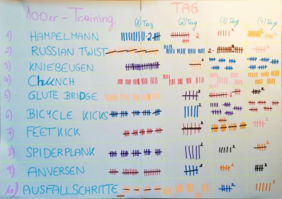 100er-Training TAG
(1) Tag (2) Tag (3) Tag (4) Tag
1) HAMPELMANN
2) RUSSIAN TWIST
3) KNIEBEUGEN
4) CRUNCH
5) GLUTE BRIDGE
6) BICYCLE KICKS
7) FEET KICK
8) SPIDERPLANK
9) ANVERSEN
10) AUSFALLSCHRITTE